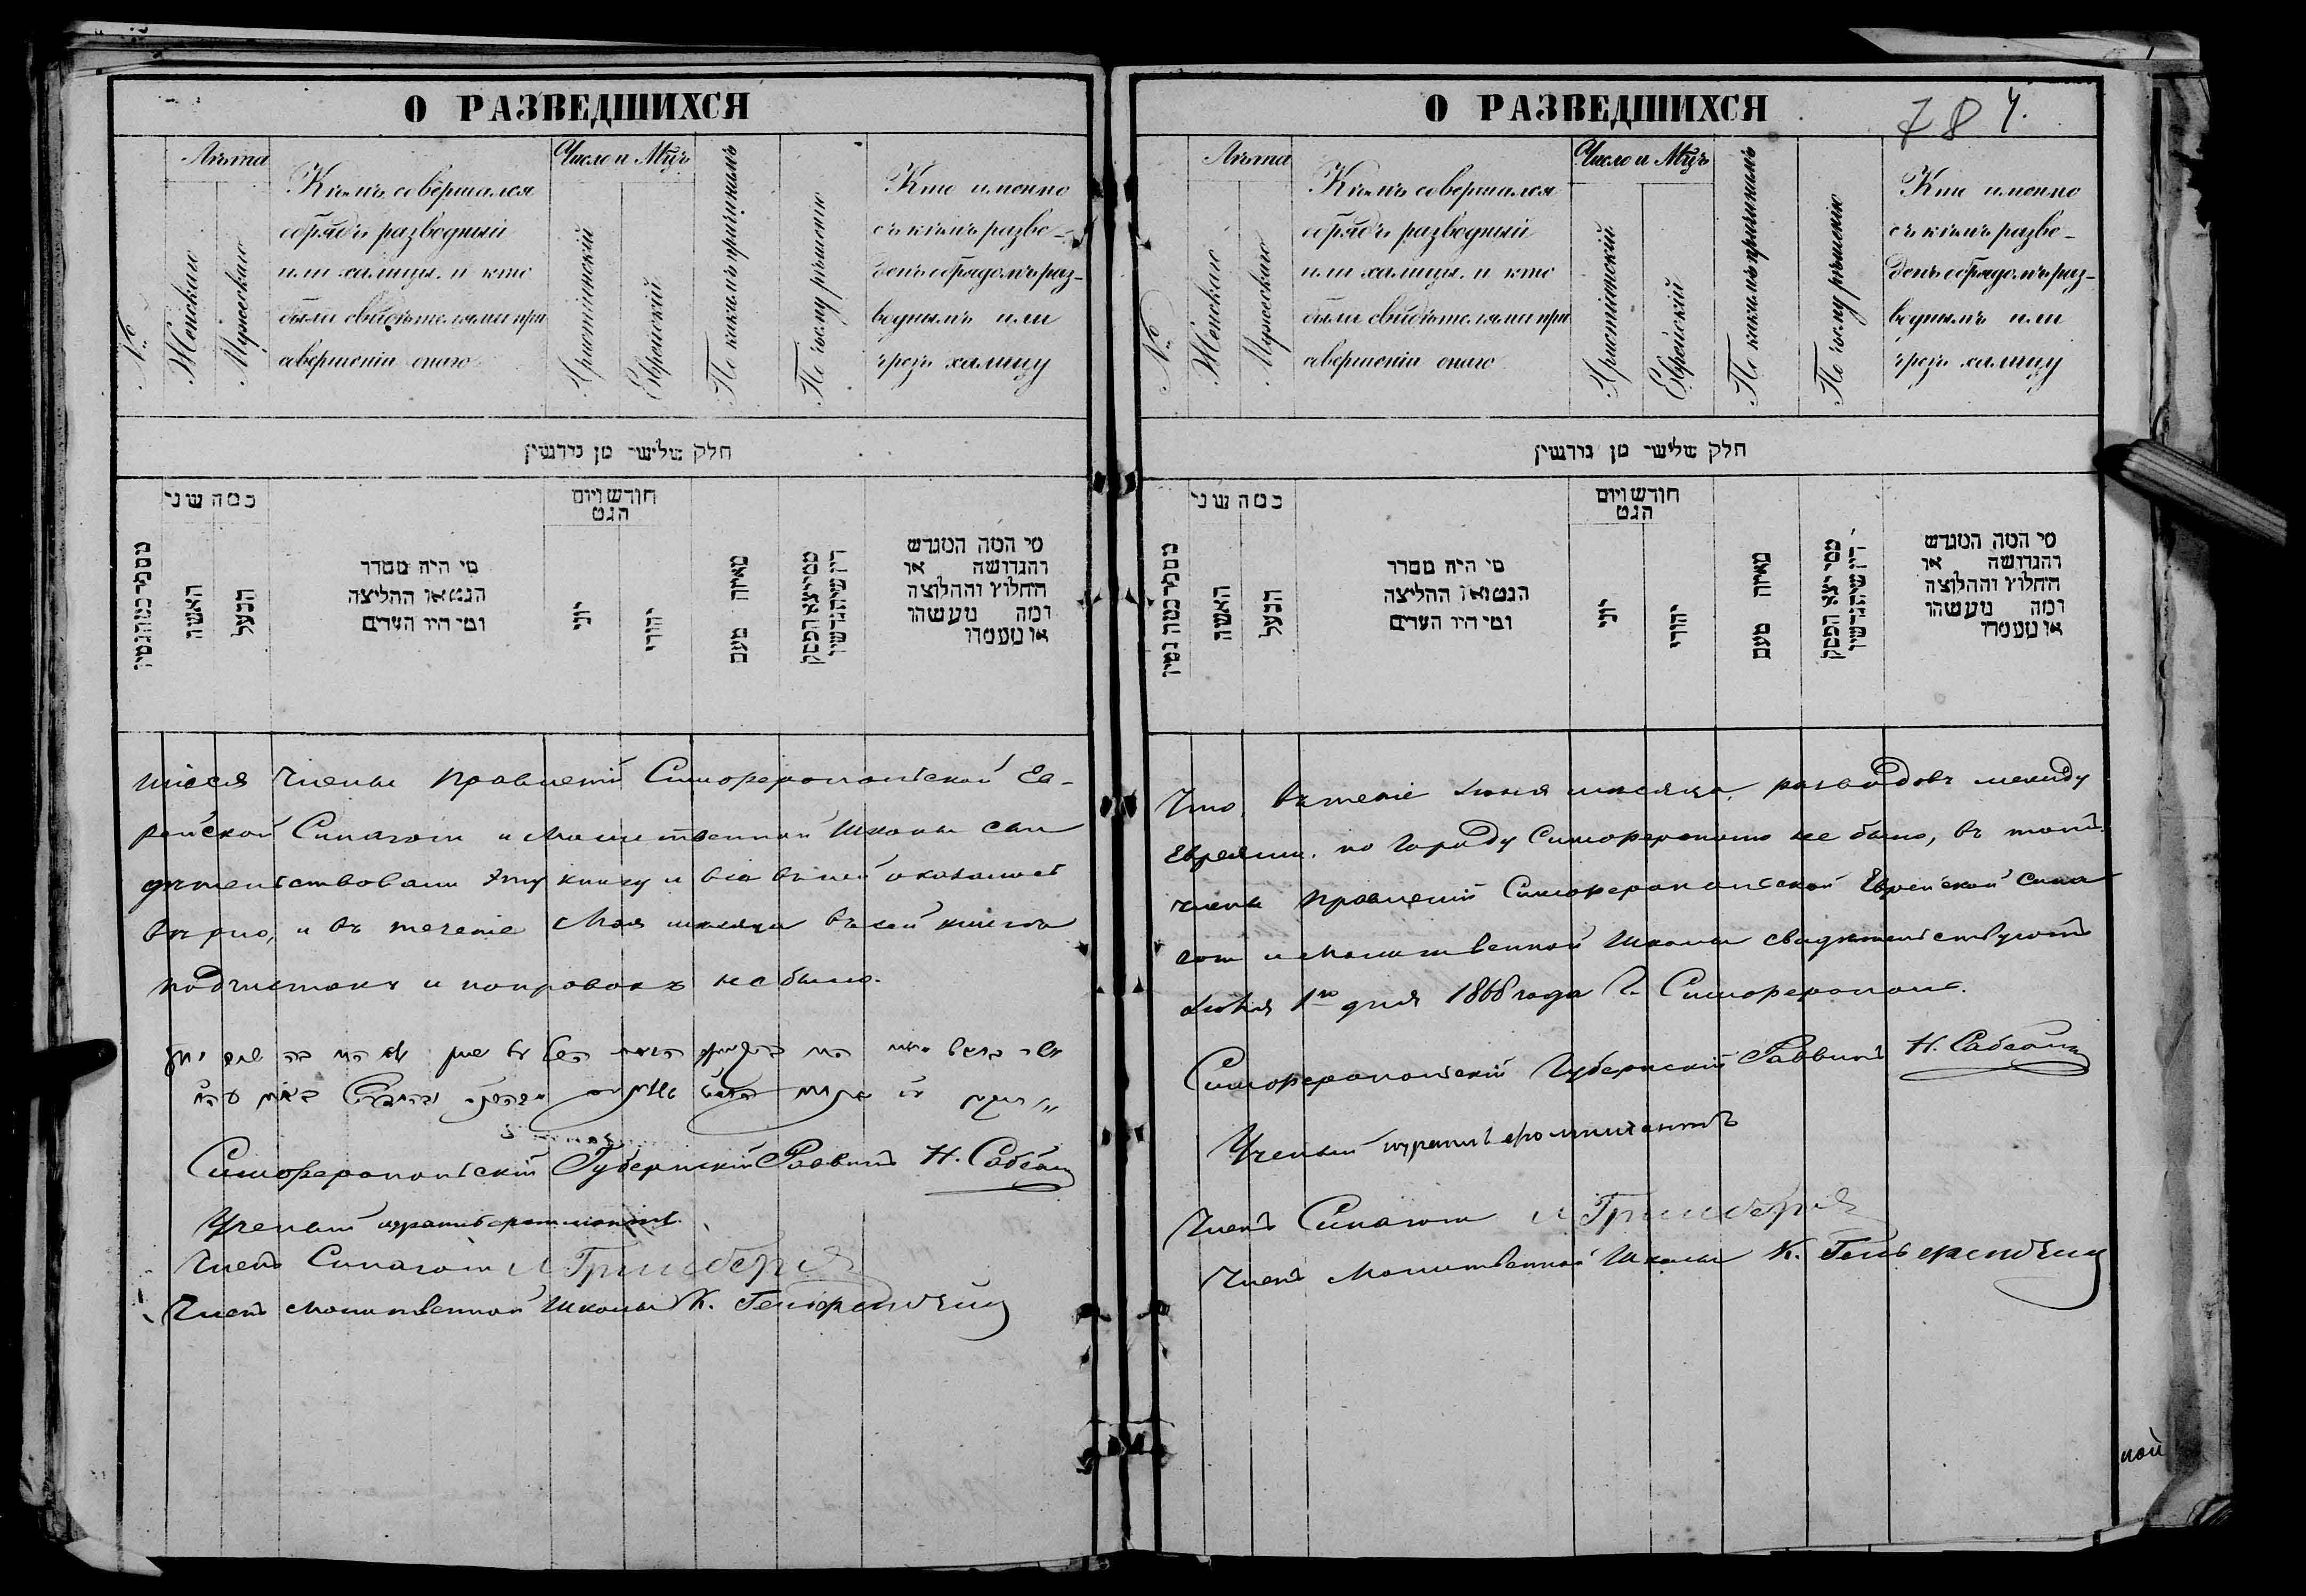 О РАЗВЕДШИХСЯ
№
Лѣта
Женскаго
Мужескаго
Кѣмъ совершался
обрядъ разводный
или халицы, и кто
были свидѣтелями при
совершеніи онаго
Число и Мѣц.
Христіянскій
Еврейскій
По какимъ причинамъ
По чьему рѣшенію
Кто именно
съ кѣмъ разве-
денъ обрядомъ раз-
воднымъ или
чрезъ халицу
חלק שלישי מן גירושין
כמה שני
האשה
הבעל
מי היה מסדר
הגט או החליצה
ומי היו העדים
חודש ויום
הגט
יוני
יהודי
מאיזה טעם
מי המה המגרש
והגרושה או
החלוץ והחלוצה
ומה מעשהו
או מעמדו
шіеся Члены Правленій Симферопольской Ев-
рейской Синагоги и Молитвенной Школы сви
дѣтельствовали эту книгу и все въ ней оказалось
вѣрно, и въ теченіе Мая мѣсяца въ сей книгѣ
подчистокъ и поправокъ не было.
Симферопольскій Губернскій Раввинъ Н. Сабсай
Ученый
Членъ Синагоги Гринберг
Членъ Молитвенной Школы К.
О РАЗВЕДШИХСЯ
784.
№
Лѣта
Женскаго
Мужескаго
Кѣмъ совершался
обрядъ разводный
или халицы, и кто
были свидѣтелями при
совершеніи онаго
Число и Мѣц.
Христіянскій
Еврейскій
По какимъ причинамъ
По чьему рѣшенію
Кто именно
съ кѣмъ разве-
денъ обрядомъ раз-
воднымъ или
чрезъ халицу
חלק שלישי מן גירושין
כמה שני
האשה
הבעל
מי היה מסדר
הגט או החליצה
ומי היו העדים
חודש ויום
הגט
יוני
יהודי
מאיזה טעם
מי המה המגרש
והגרושה או
החלוץ והחלוצה
ומה מעשהו
או מעמדו
Что, въ теченіе Іюня мѣсяца, разводовъ между
Евреями по городу Симферополю не было, въ томъ
члены Правленій Симферопольской Еврейской Сина
гоги и Молитвенной Школы свидѣтельствуютъ
1го дня 1868 года Г. Симферополь.
Симферопольскій Губернскій Раввинъ Н. Сабсай
Ученый
Членъ Синагоги Гринберг
Членъ Молитвенной Школы К.
ной